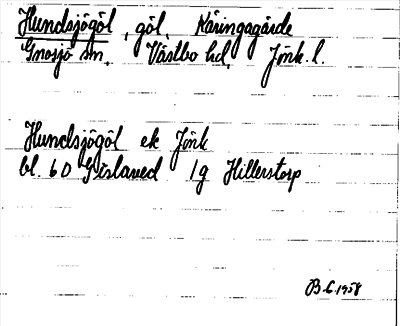 Hundsjögöl, göl, Käringagärde
Gnosjö sn, Västbo hd, Jönk. l.
Hundsjögöl ek Jönk
bl. 6 D Gislaved 1g Hillerstorp
B.C. 1958